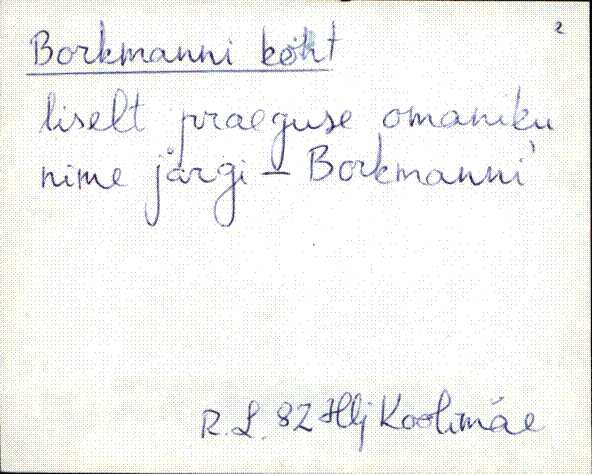 2
Borkmanni koht
liselt praeguse omaniku
nime järgi – Borkmanni'
R. L. 82 Hlj Koolimäe